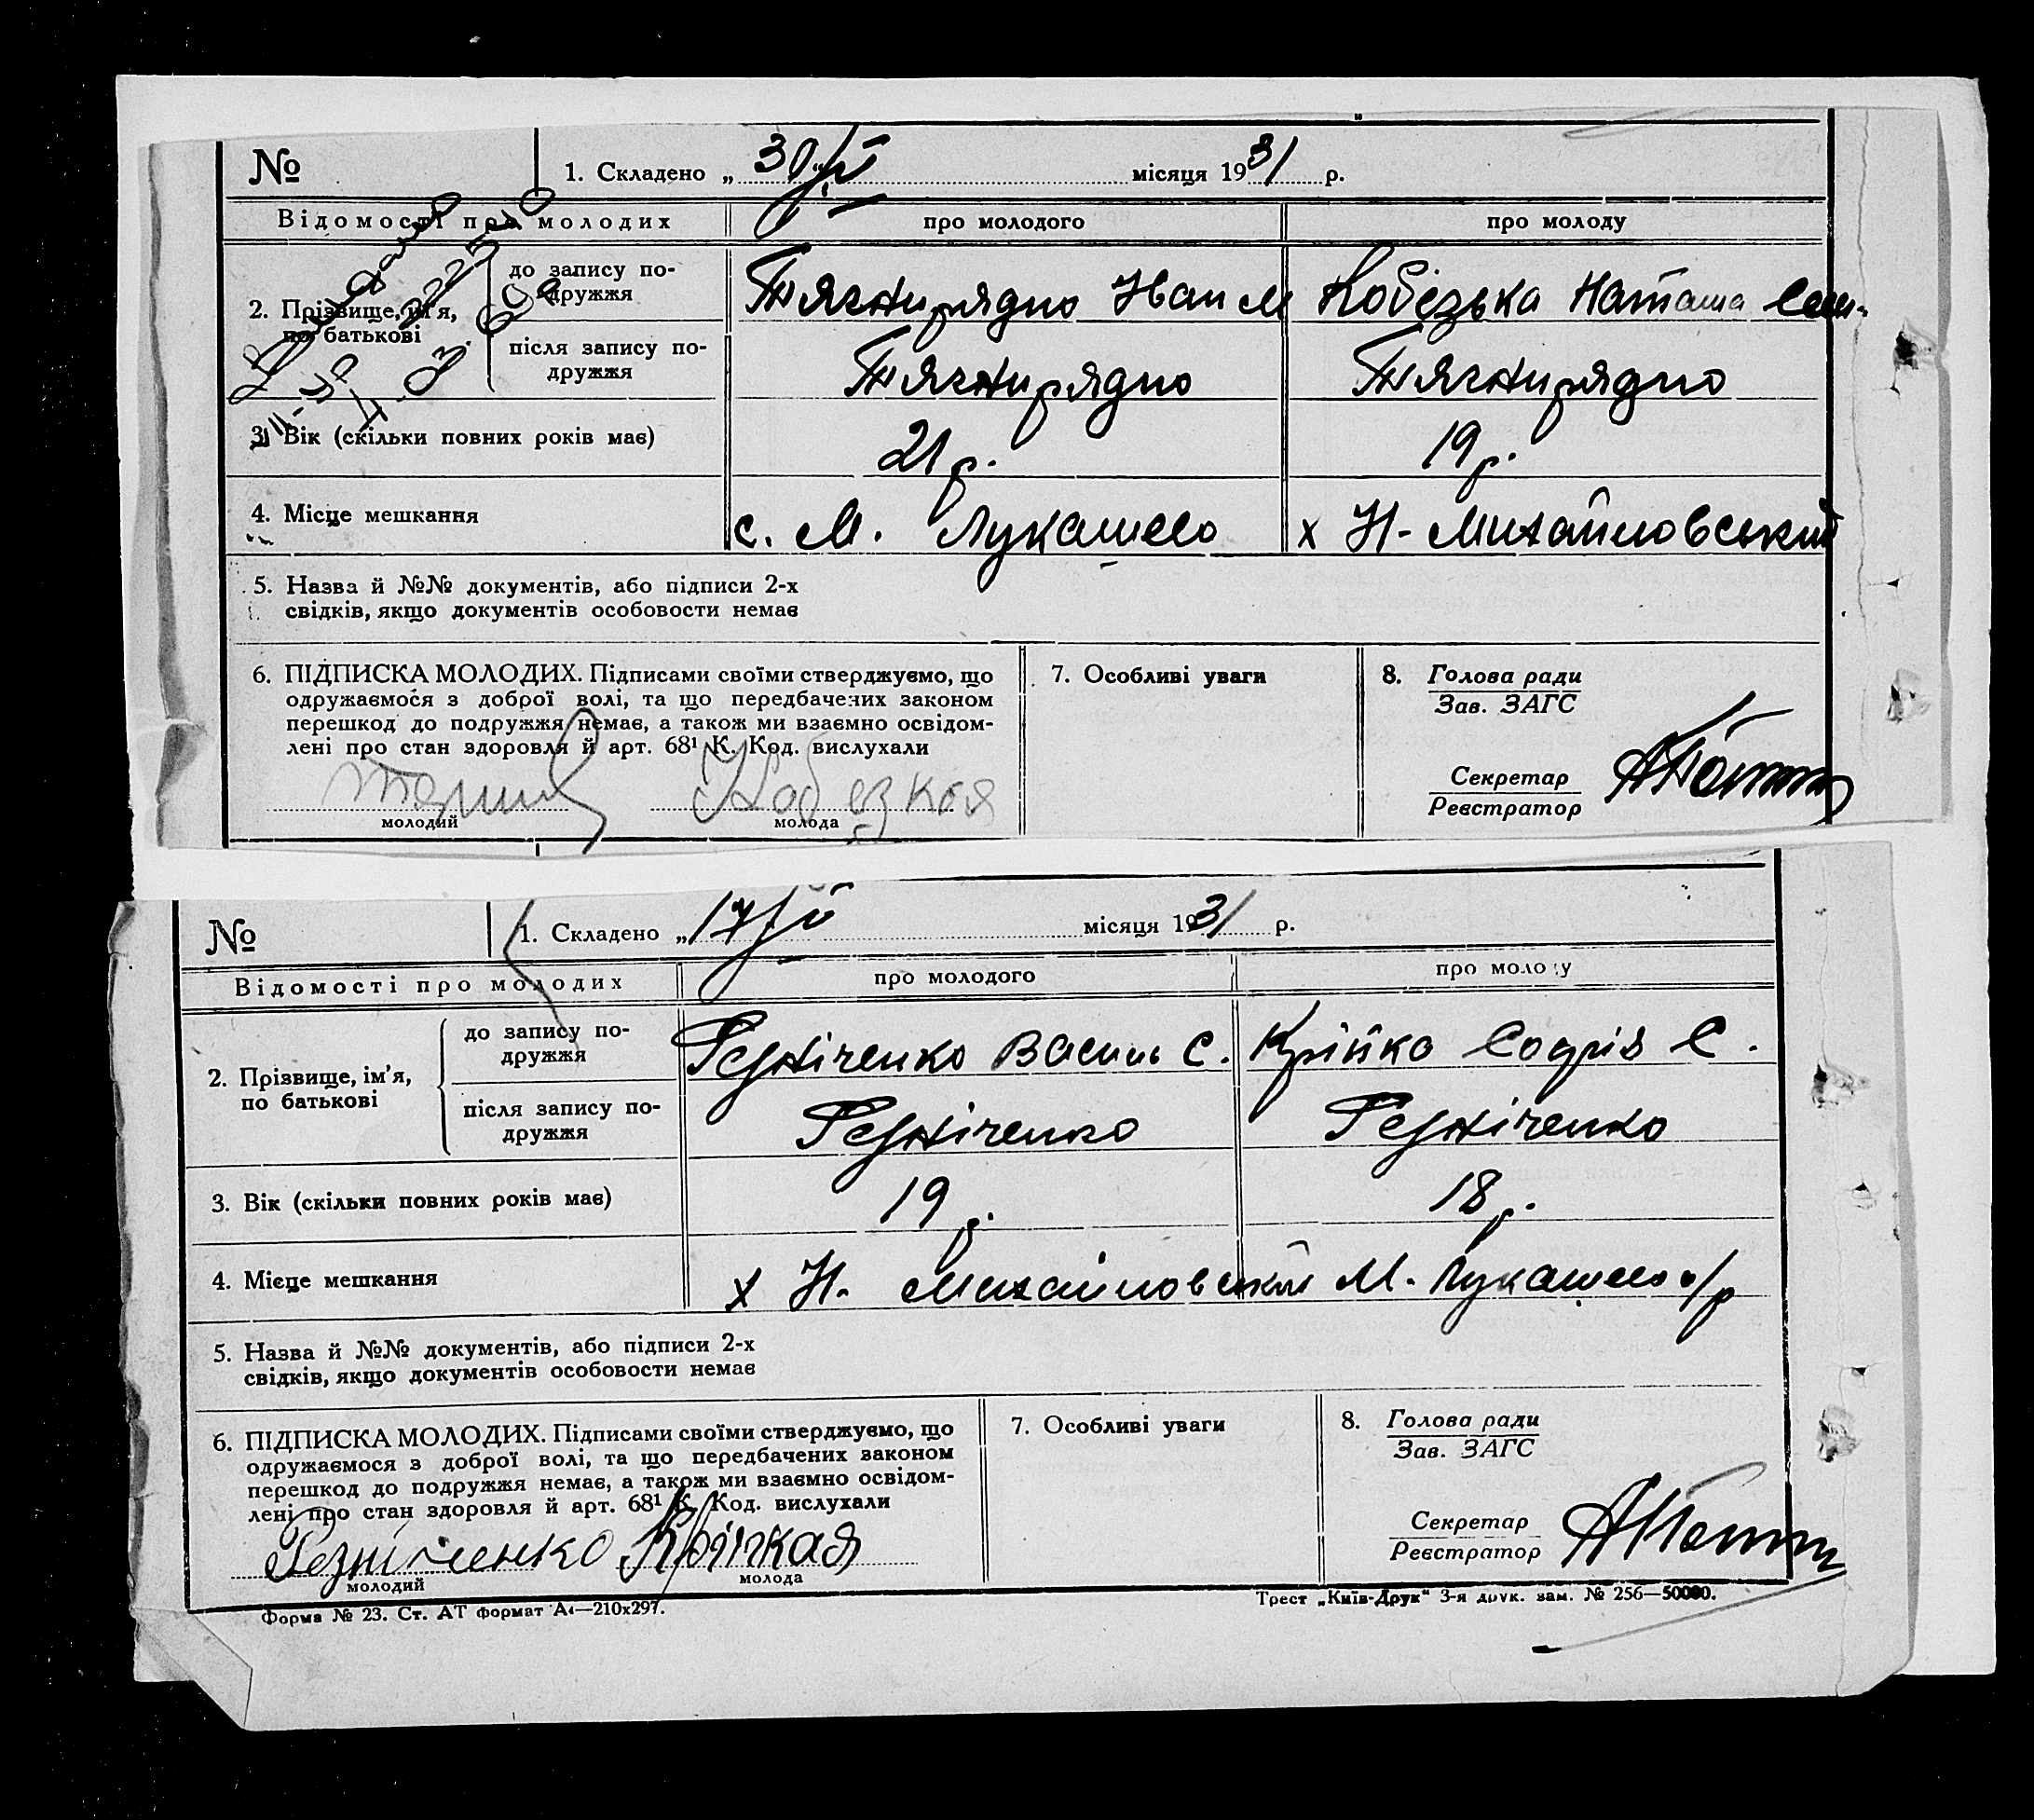 № 1. Складено „ 30/IV місяця 1931 р.
Відомості про молодих про молодого про молоду
2. Прізвище, ім'я, по батькові
до запису по-
дружжя
Тягнирядно Іван М Кобезька Наташа Сем.
після запису по-
дружжя
Тягнирядно Тягнирядно
3. Вік (скільки повних років має) 21 р. 19 р.
4. Місце мешкання с. М. Лукашево х Н-Михайловський
5. Назва й №№ документів, або підписи 2-х
свідків, якщо документів особовости немає
6. ПІДПИСКА МОЛОДИХ. Підписами своїми стверджуємо, що
одружаємося з доброї волі, та що передбачених законом
перешкод до подружжя немає, а також ми взаємно освідом-
лені про стан здоровля й арт. 68¹ К. Код. вислухали
Кобезкая
молодий молода
7. Особливі уваги
8. Голова ради
Зав. ЗАГС
Секретар
Реєстратор
№ 1. Складено „ 17/V місяця 1931 р.
Відомості про молодих про молодого про молоду
2. Прізвище, ім'я,
по батькові
до запису по-
дружжя
Резніченко Василь С. Крійка Софія С.
після запису по-
дружжя
Резніченко Резніченко
3. Вік (скільки повних років має) 19 р. 18 р.
4. Місце мешкання х Н. Михайловський М. Лукашево с/р
5. Назва й №№ документів, або підписи 2-х
свідків, якщо документів особовости немає
6. ПІДПИСКА МОЛОДИХ. Підписами своїми стверджуємо, що
одружаємося з доброї волі, та що передбачених законом
перешкод до подружжя немає, а також ми взаємно освідом-
лені про стан здоровля й арт. 68¹ К. Код. вислухали
Резниченко
молодий молода
7. Особливі уваги
8. Голова ради
Зав. ЗАГС
Секретар
Реєстратор
Форма № 23. Ст. АТ формат А₄—210х297.
Трест „Київ-Друк" 3-я друк. зам. № 256—50000.